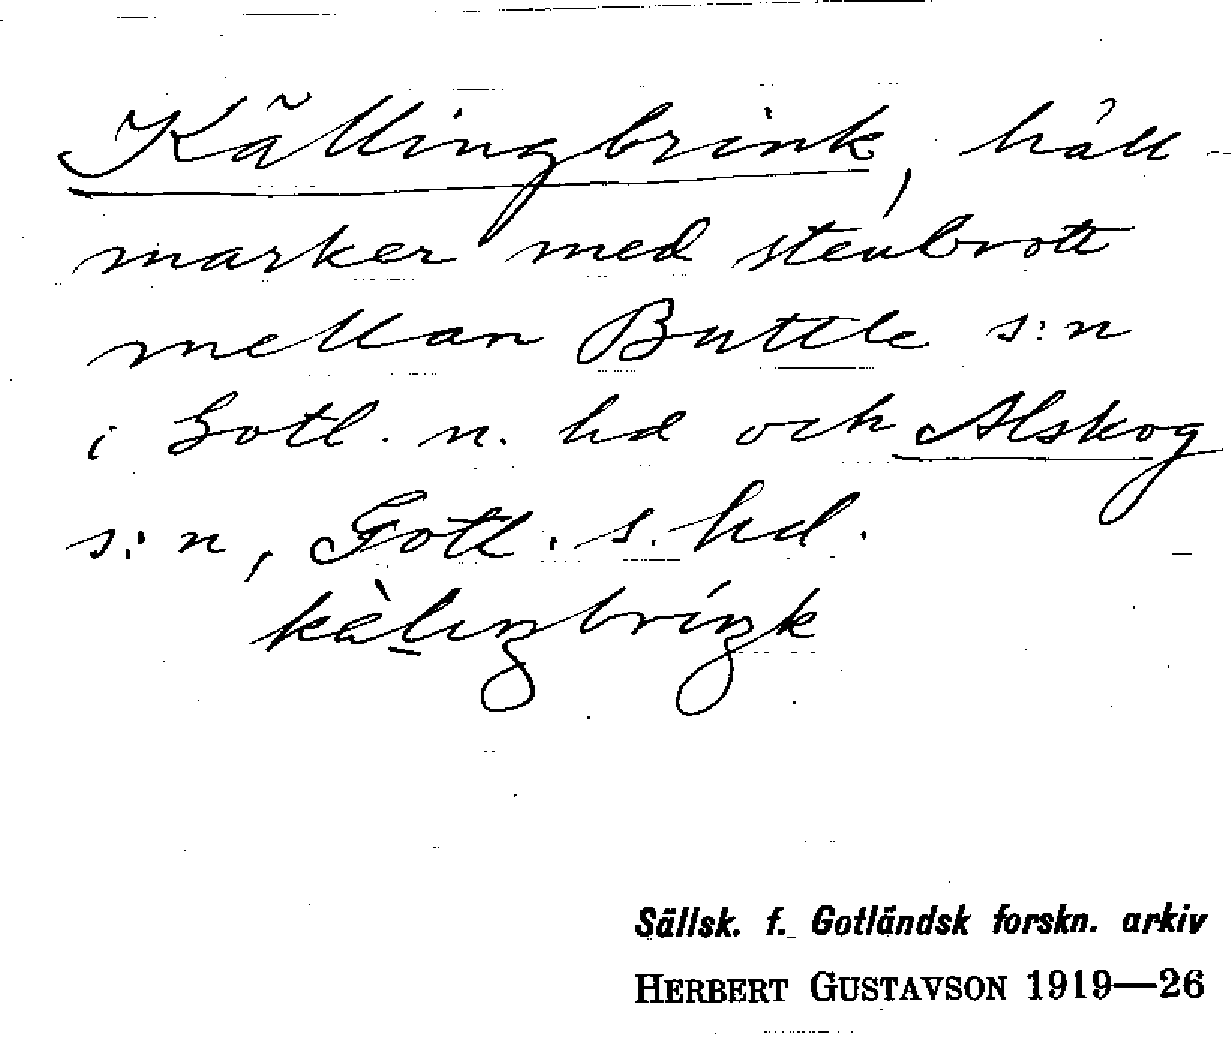 Källingbrink, häll-
marker med stenbrott
mellan Buttle s:n
i Gotl. n. hd och Alskog
s:n, Gotl. s. hd.
kä̀lıŋbríŋk
Sällsk. f. Gotländsk forskn. arkiv
HERBERT GUSTAVSON 1919—26